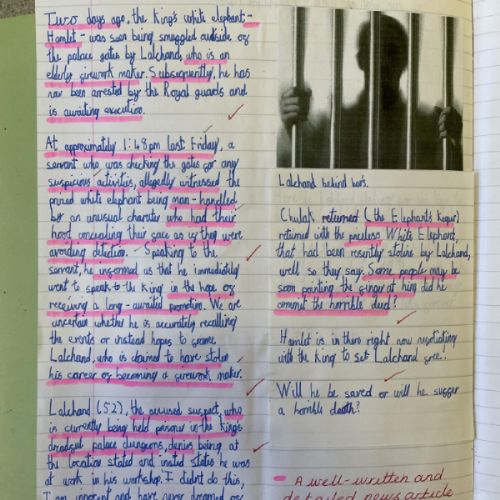 Two days ago, the King's white elephant -
Hamlet - was seen being smuggled outside of
the palace gates by Lalchand, who is an
elderly firework maker. Subsequently, he has
now been arrested by the Royal guards and
is awaiting execution.
At approximately 1:48pm last Friday, a
servant who was checking the gates for any
suspicious activities, allegedly witnessed the
prized white elephant being man-handled
by an unusual charater who had their
hood concealing their face as if they were
avoiding detection. Speaking to the
servant, he informed us that he immediately
went to speak to the King in the hope of
receiving a long-awaited promotion. We are
uncertain whether he is accurately recalling
the events or instead hopes to frame
Lalchand, who is claimed to have stolen
his career of becoming a firework maker.
Lalchand (52), the accused suspect, who
is currently being held prisoner in the King's
dreadful palace dungeons, denies being at
the location stated and insted states he was
at work in his workshop. I didnt do this,
I am innocent and have never dreamed of
Lalchand behind bars.
Chulak returned (the Elephants Keeper)
returned with the priceless White Elephant,
that had been resently stolen by Lalchand,
well so they say. Some people may be
soon pointing the finger at him, did he
commit the horrible deed?
Hamlet is in there right now negotiating
with the King to set Lalchand free!
Will he be saved or will he suffer
a horrible death?
A well-written and
detailed news article